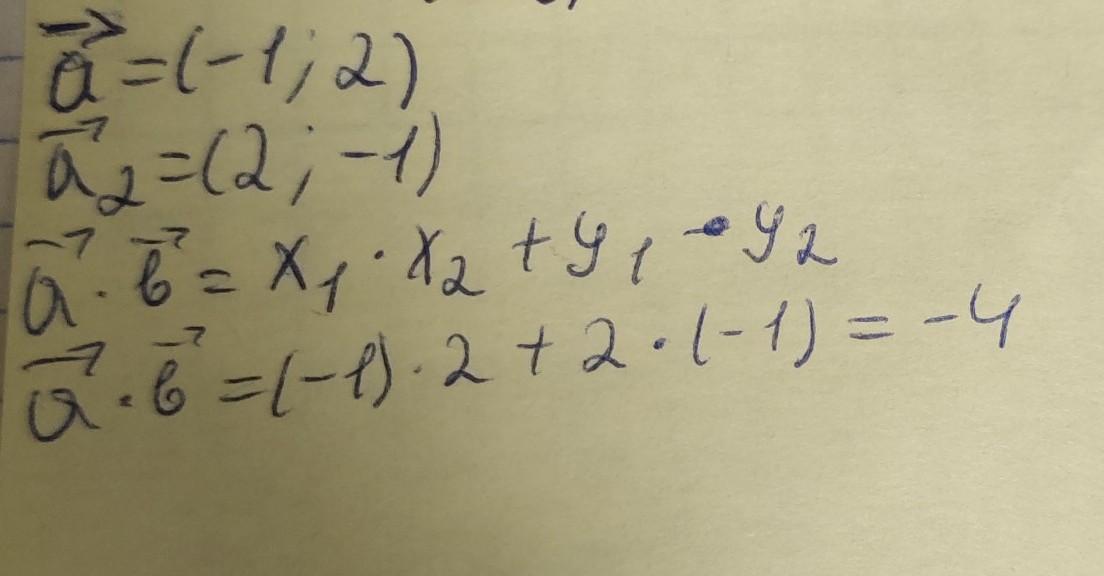 a⃗ = (-1; 2)
a⃗₂ = (2; -1)
a⃗ · в⃗ = x₁ · x₂ + y₁ · y₂
a⃗ · в⃗ = (-1) · 2 + 2 · (-1) = -4